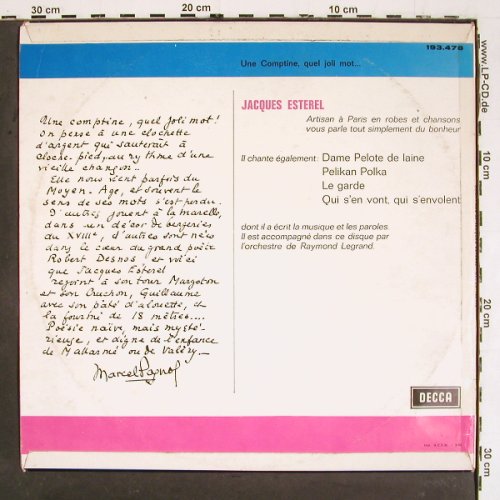 30 cm
20 cm
10 cm
193.478
Une Comptine, quel joli mot...
JACQUES ESTEREL
Artisan à Paris en robes et chansons
vous parle tout simplement du bonheur
Il chante également: Dame Pelote de laine
Pelikan Polka
Le garde
Qui s'en vont, qui s'envolent
dont il a écrit la musique et les paroles.
Il est accompagné dans ce disque par
l'orchestre de Raymond Legrand.
Une comptine, quel joli mot!
On pense à une clochette
d'argent qui sauterait à
cloche-pied, au rythme d'une
vieille chanson..
Elle nous vient parfois du
Moyen-Age, et souvent le
sens de ses mots s'est perdu.
D'autres jouent à la marelle,
dans un décor de bergeries
du XVIIIe, d'autres sont nées
dans le cœur du grand poète
Robert Desnos et voici
que Jacques Esterel
rejoint à son tour Margoton
et son Cruchon, Guillaume
avec son pâté d'alouette, et
la fourmi de 18 mètres....
Poésie naïve, mais mysté-
rieuse, et digne de l'enfance
de Mallarmé ou de Valéry._
Marcel Pagnol
DECCA
www.LP-CD.de
10 cm
20 cm
30 cm